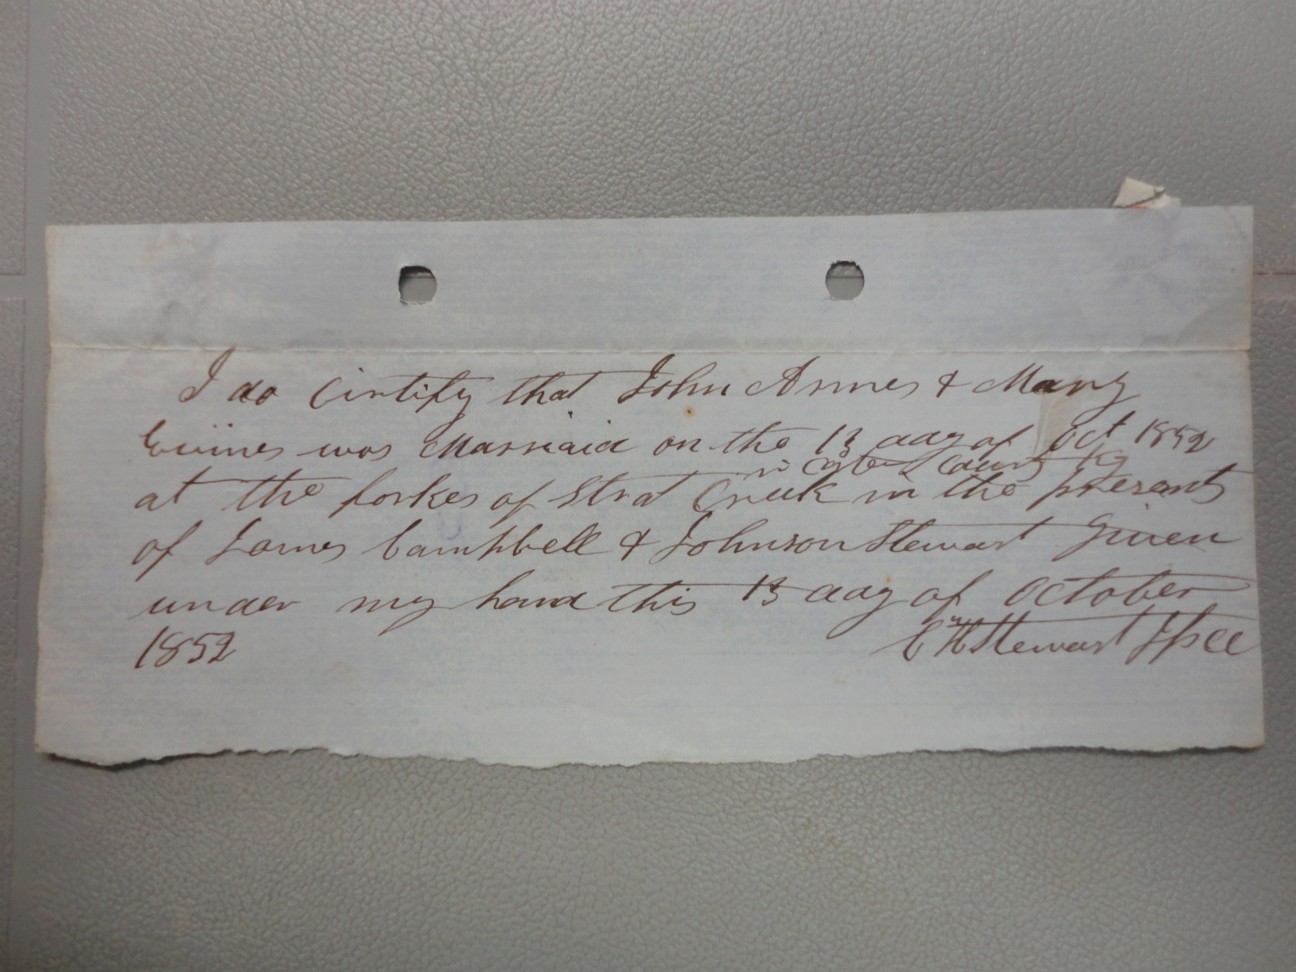 I do Cirtify that John Armes & Mary
was Marriaid on the 13 day of Oct 1852
in County Ky
at the forkes of Strat Creek in the presents
of James Campbell & Johnson Stewart Given
under my hand this 13 day of October
1852 Stewart